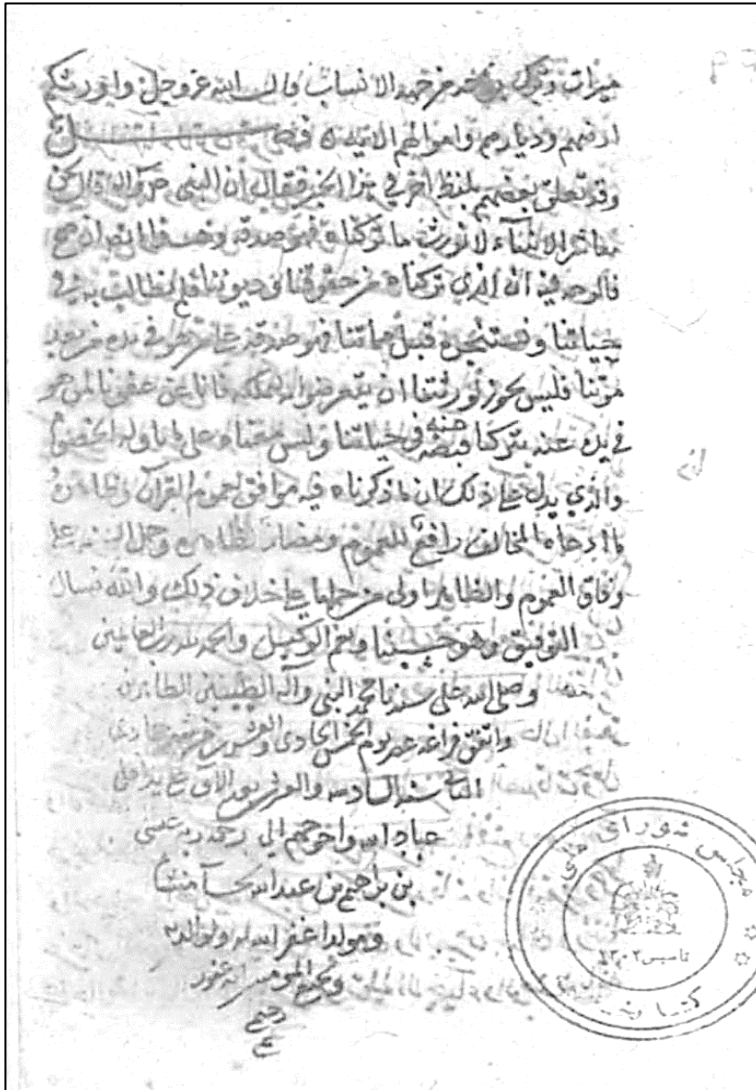 ميراث وتركة
الانساب قال الله عز وجل واورثكم
ارضهم وديارهم واموالهم الاية فصل
وقد تعلق بعضهم بلفظ اخر في هذا الخبر فقال ان النبي صلى الله عليه واله قال نحن
معاشر الانبياء لا نورث ما تركناه فهو صدقة وهذا
فالوجه فيه ان الذي تركناه من حقوقنا وديوننا فلم نطالب به في
حياتنا ونستنجزه قبل مماتنا فهو صدقة على من هو في يده من بعد
موتنا فليس يجوز لورثتنا ان يتعرضوا لتمليكه فانا قد عفونا لمن هو
في يده عنه بتركنا قبضه منه في حياتنا وليس معناه على ما تاوله الخصوم
والذي يدل على ذلك ان ما ذكرناه فيه موافق لعموم القران وظاهره
ما ادعاه المخالف رافع للعموم ومضاد لظاهره وحمل السنة على
وفاق العموم والظاهر اولى من حملها على خلاف ذلك والله نسال
التوفيق وهو حسبنا ونعم الوكيل والحمد لله رب العالمين
وصلى الله على سيدنا محمد النبي واله الطيبين الطاهرين
واتفق فراغه يوم الخمس الحادى والعشر من شهر جمادى
الثانى سنة السادسة والعشر بعد الالف على يد اقل
عباد الله واحوجهم الى رحمة ربه عيسى
بن ابراهيم بن عبد الله منشأ
ومولدا غفر الله له ولوالديه
ولجميع المومنين انه غفور
رحيم
مجلس شورای ملی
تاسیس ۱۳۰۲